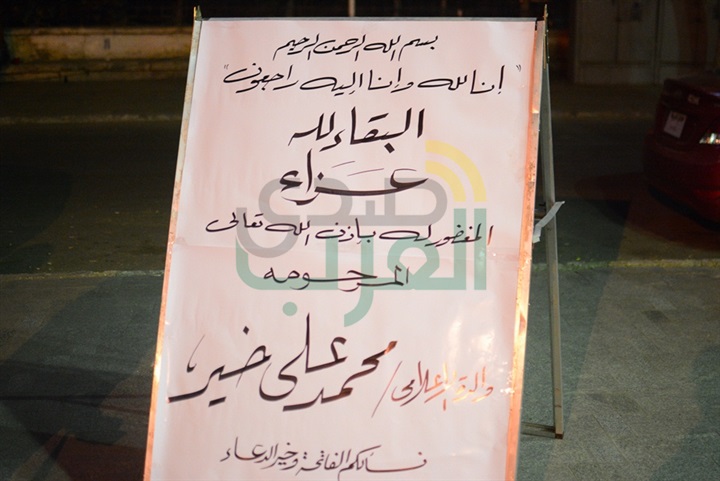 بسم الله الرحمن الرحيم
"إنا لله وإنا إليه راجعون"
البقاء لله
عزاء
المغفور له بإذن الله تعالى
المرحومه
والدة الإعلامى / محمد على خير
نسألكم الفاتحة وخير الدعاء
صدى
العرب